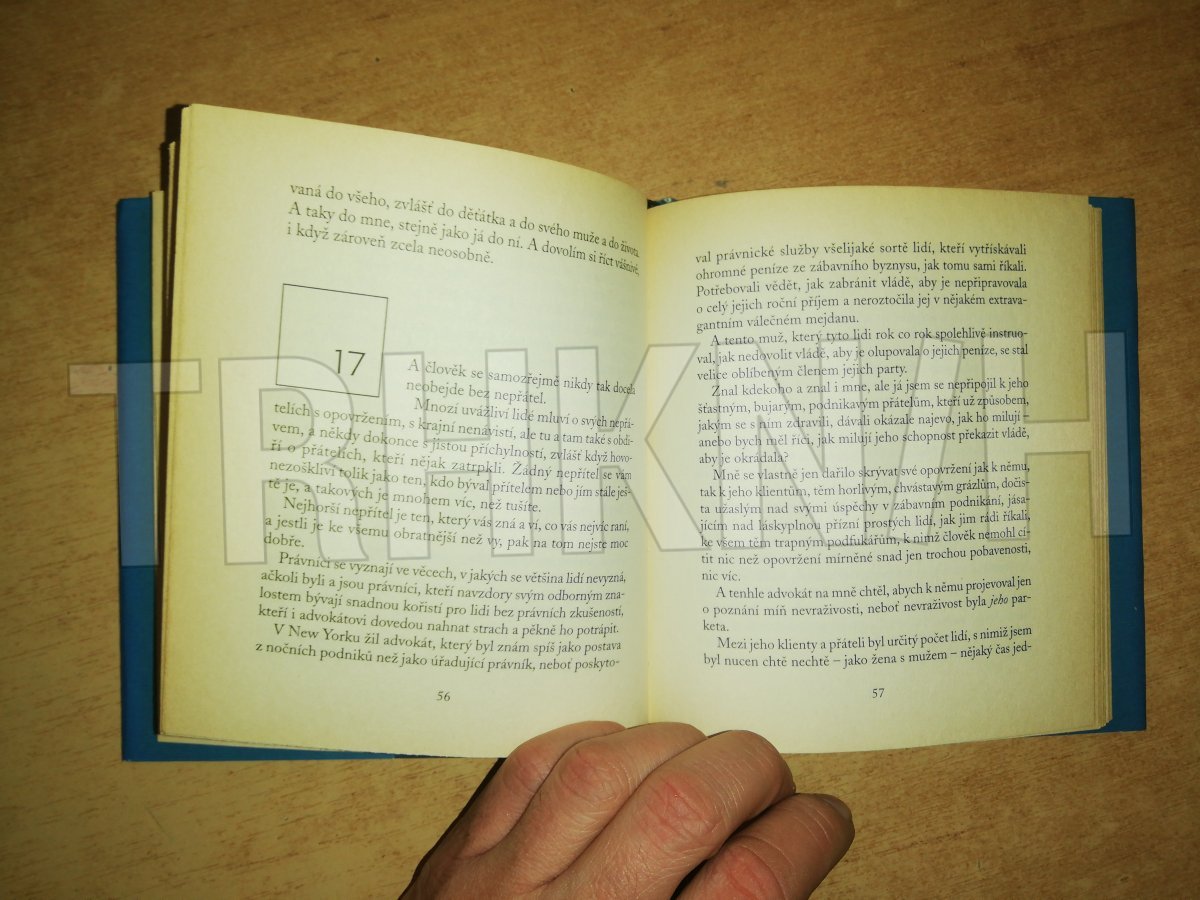 vaná do všeho, zvlášť do děťátka a do svého muže a do života.
A taky do mne, stejně jako já do ní. A dovolím si říct vášnivě,
i když zároveň zcela neosobně.
17
A člověk se samozřejmě nikdy tak docela
neobejde bez nepřátel.
Mnozí uvážliví lidé mluví o svých nepřá-
telích s opovržením, s krajní nenávistí, ale tu a tam také s obdi-
vem, a někdy dokonce s jistou příchylností, zvlášť když hovo-
ří o přátelích, kteří nějak zatrpkli. Žádný nepřítel se vám
nezoškliví tolik jako ten, kdo býval přítelem nebo jím stále ješ-
tě je, a takových je mnohem víc, než tušíte.
Nejhorší nepřítel je ten, který vás zná a ví, co vás nejvíc raní,
a jestli je ke všemu obratnější než vy, pak na tom nejste moc
dobře.
Právníci se vyznají ve věcech, v jakých se většina lidí nevyzná,
ačkoli byli a jsou právníci, kteří navzdory svým odborným zna-
lostem bývají snadnou kořistí pro lidi bez právních zkušeností,
kteří i advokátovi dovedou nahnat strach a pěkně ho potrápit.
V New Yorku žil advokát, který byl znám spíš jako postava
z nočních podniků než jako úřadující právník, neboť poskyto-
56
val právnické služby všelijaké sortě lidí, kteří vytřískávali
ohromné peníze ze zábavního byznysu, jak tomu sami říkali.
Potřebovali vědět, jak zabránit vládě, aby je nepřipravovala
o celý jejich roční příjem a neroztočila jej v nějakém extrava-
gantním válečném mejdanu.
A tento muž, který tyto lidi rok co rok spolehlivě instruo-
val, jak nedovolit vládě, aby je olupovala o jejich peníze, se stal
velice oblíbeným členem jejich party.
Znal kdekoho a znal i mne, ale já jsem se nepřipojil k jeho
šťastným, bujarým, podnikavým přátelům, kteří už způsobem,
jakým se s ním zdravili, dávali okázale najevo, jak ho milují –
anebo bych měl říci, jak milují jeho schopnost překazit vládě,
aby je okrádala?
Mně se vlastně jen dařilo skrývat své opovržení jak k němu,
tak k jeho klientům, těm horlivým, chvástavým grázlům, dočis-
ta užaslým nad svými úspěchy v zábavním podnikání, jása-
jícím nad láskyplnou přízní prostých lidí, jak jim rádi říkali,
ke všem těm trapným podfukářům, k nimž člověk nemohl cí-
tit nic než opovržení mírněné snad jen trochou pobavenosti,
nic víc.
A tenhle advokát na mně chtěl, abych k němu projevoval jen
o poznání míň nevraživosti, neboť nevraživost byla jeho par-
keta.
Mezi jeho klienty a přáteli byl určitý počet lidí, s nimiž jsem
byl nucen chtě nechtě – jako žena s mužem – nějaký čas jed-
57
TRHKNIH